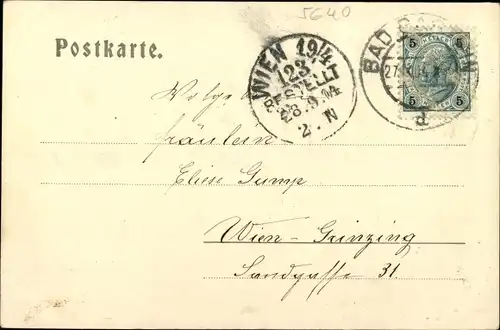 5640
Postkarte.
WIEN 19/4
123
BESTELLT
28.9.04
2. N
BAD
27
d
5 5
5 5
Fräulein
Eliese Gump
Wien - Grinzing
Sandgasse 31.